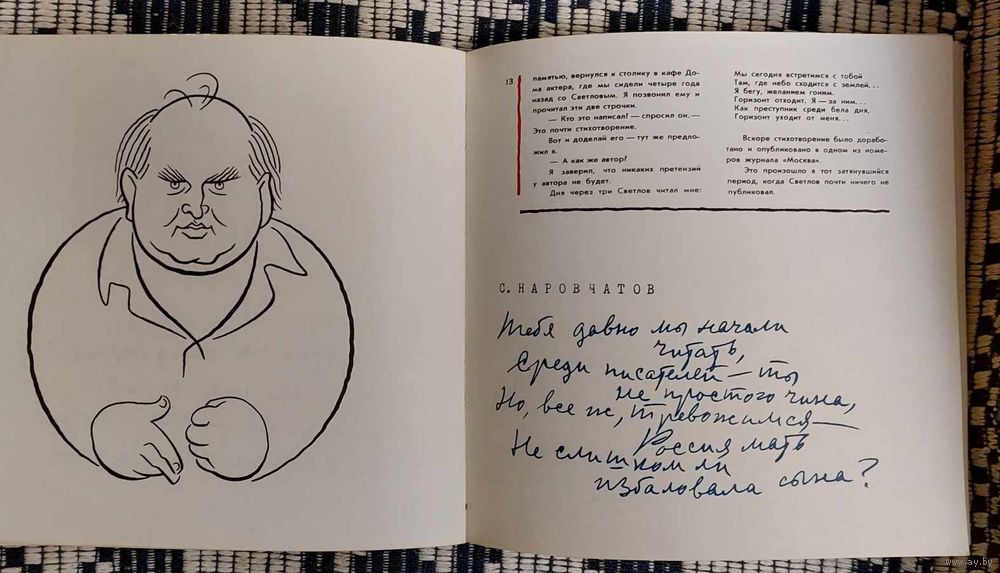 13
памятью, вернулся к столику в кафе До-
ма актера, где мы сидели четыре года
назад со Светловым. Я позвонил ему и
прочитал эти две строчки.
— Кто это написал! — спросил он. —
Это почти стихотворение.
Вот и доделай его — тут же предло-
жил я.
— А как же автор!
Я заверил, что никаких претензий
у автора не будет.
Дня через три Светлов читал мне:
Мы сегодня встретимся с тобой
Там, где небо сходится с землей...
Я бегу, желанием гоним.
Горизонт отходит. Я — за ним...
Как преступник среди бела дня,
Горизонт уходит от меня...
Вскоре стихотворение было дорабо-
тано и опубликовано в одном из номе-
ров журнала «Москва».
Это произошло в тот затянувшийся
период, когда Светлов почти ничего не
публиковал.
С. НАРОВЧАТОВ
Тебя давно мы начали
читать,
Среди писателей — ты
не простого чина,
Но, все ж, тревожимся —
Россия мать
Не слишком ли
избаловала сына?
www.ay.by